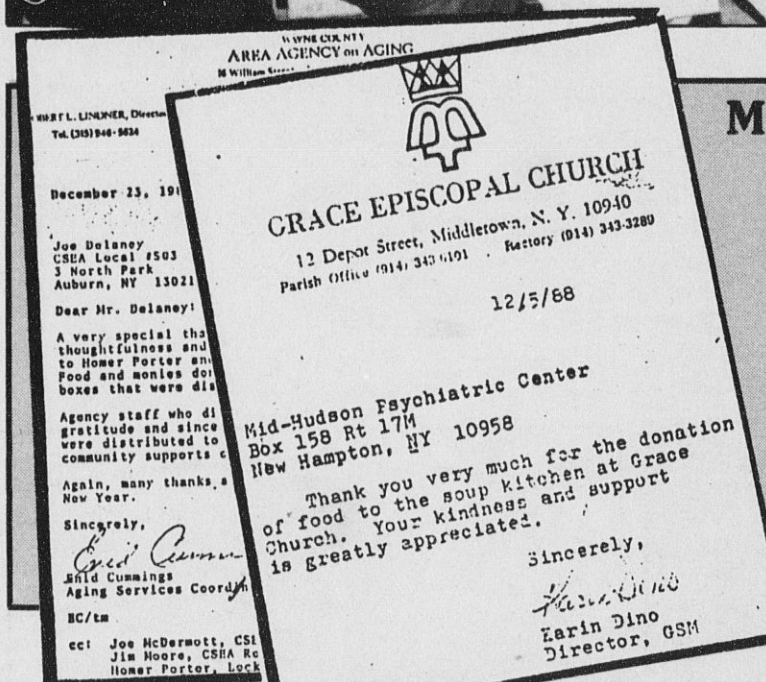 WAYNE COUNTY
AREA AGENCY on AGING
William
L. LINDNER, Director
Tel. (315) 946-5624
December 23,
Joe Delaney
CSEA Local #503
3 North Park
Auburn, NY 13021
Dear Mr. Delaney:
A very special
thoughtfulness and
to Homer Porter
Food and monies
boxes that were
Agency staff who
gratitude and
were distributed to
community supports
Again, many thanks
New Year.
Sincerely,
Enid Cummings
Aging Services
EC/tm
cc: Joe McDermott,
Jim Moore, CSEA
Homer Porter,
GRACE EPISCOPAL CHURCH
12 Depot Street, Middletown, N. Y. 10940
Parish Office (914) 343-6101 . Rectory (914) 343-3280
12/5/88
Mid-Hudson Psychiatric Center
Box 158 Rt 17M
New Hampton, NY 10958
Thank you very much for the donation
of food to the soup kitchen at Grace
Church. Your kindness and support
is greatly appreciated.
Sincerely,
Karin Dino
Karin Dino
Director, GSM
M